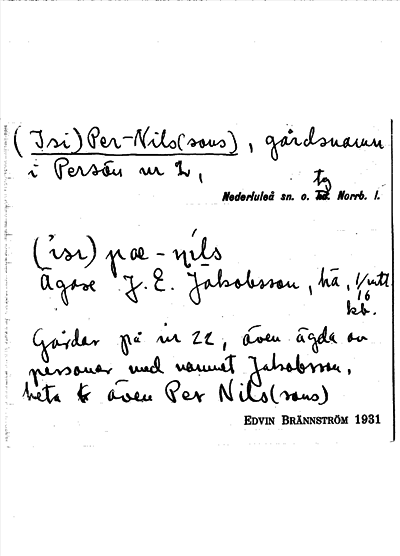 (Isi) Per-Nils(sons), gårdsnamn
i Persön nr 2,
tg
Nederluleå sn. o. hd. Norrb. l.
('isi) pæ - nils
Ägare J. E. Jakobsson, hä, 1/mtl
16
kb.
Gårdar på nr 22, även ägda av
personer med namnet Jakobsson,
heta även Per Nils(sons)
EDVIN BRÄNNSTRÖM 1931